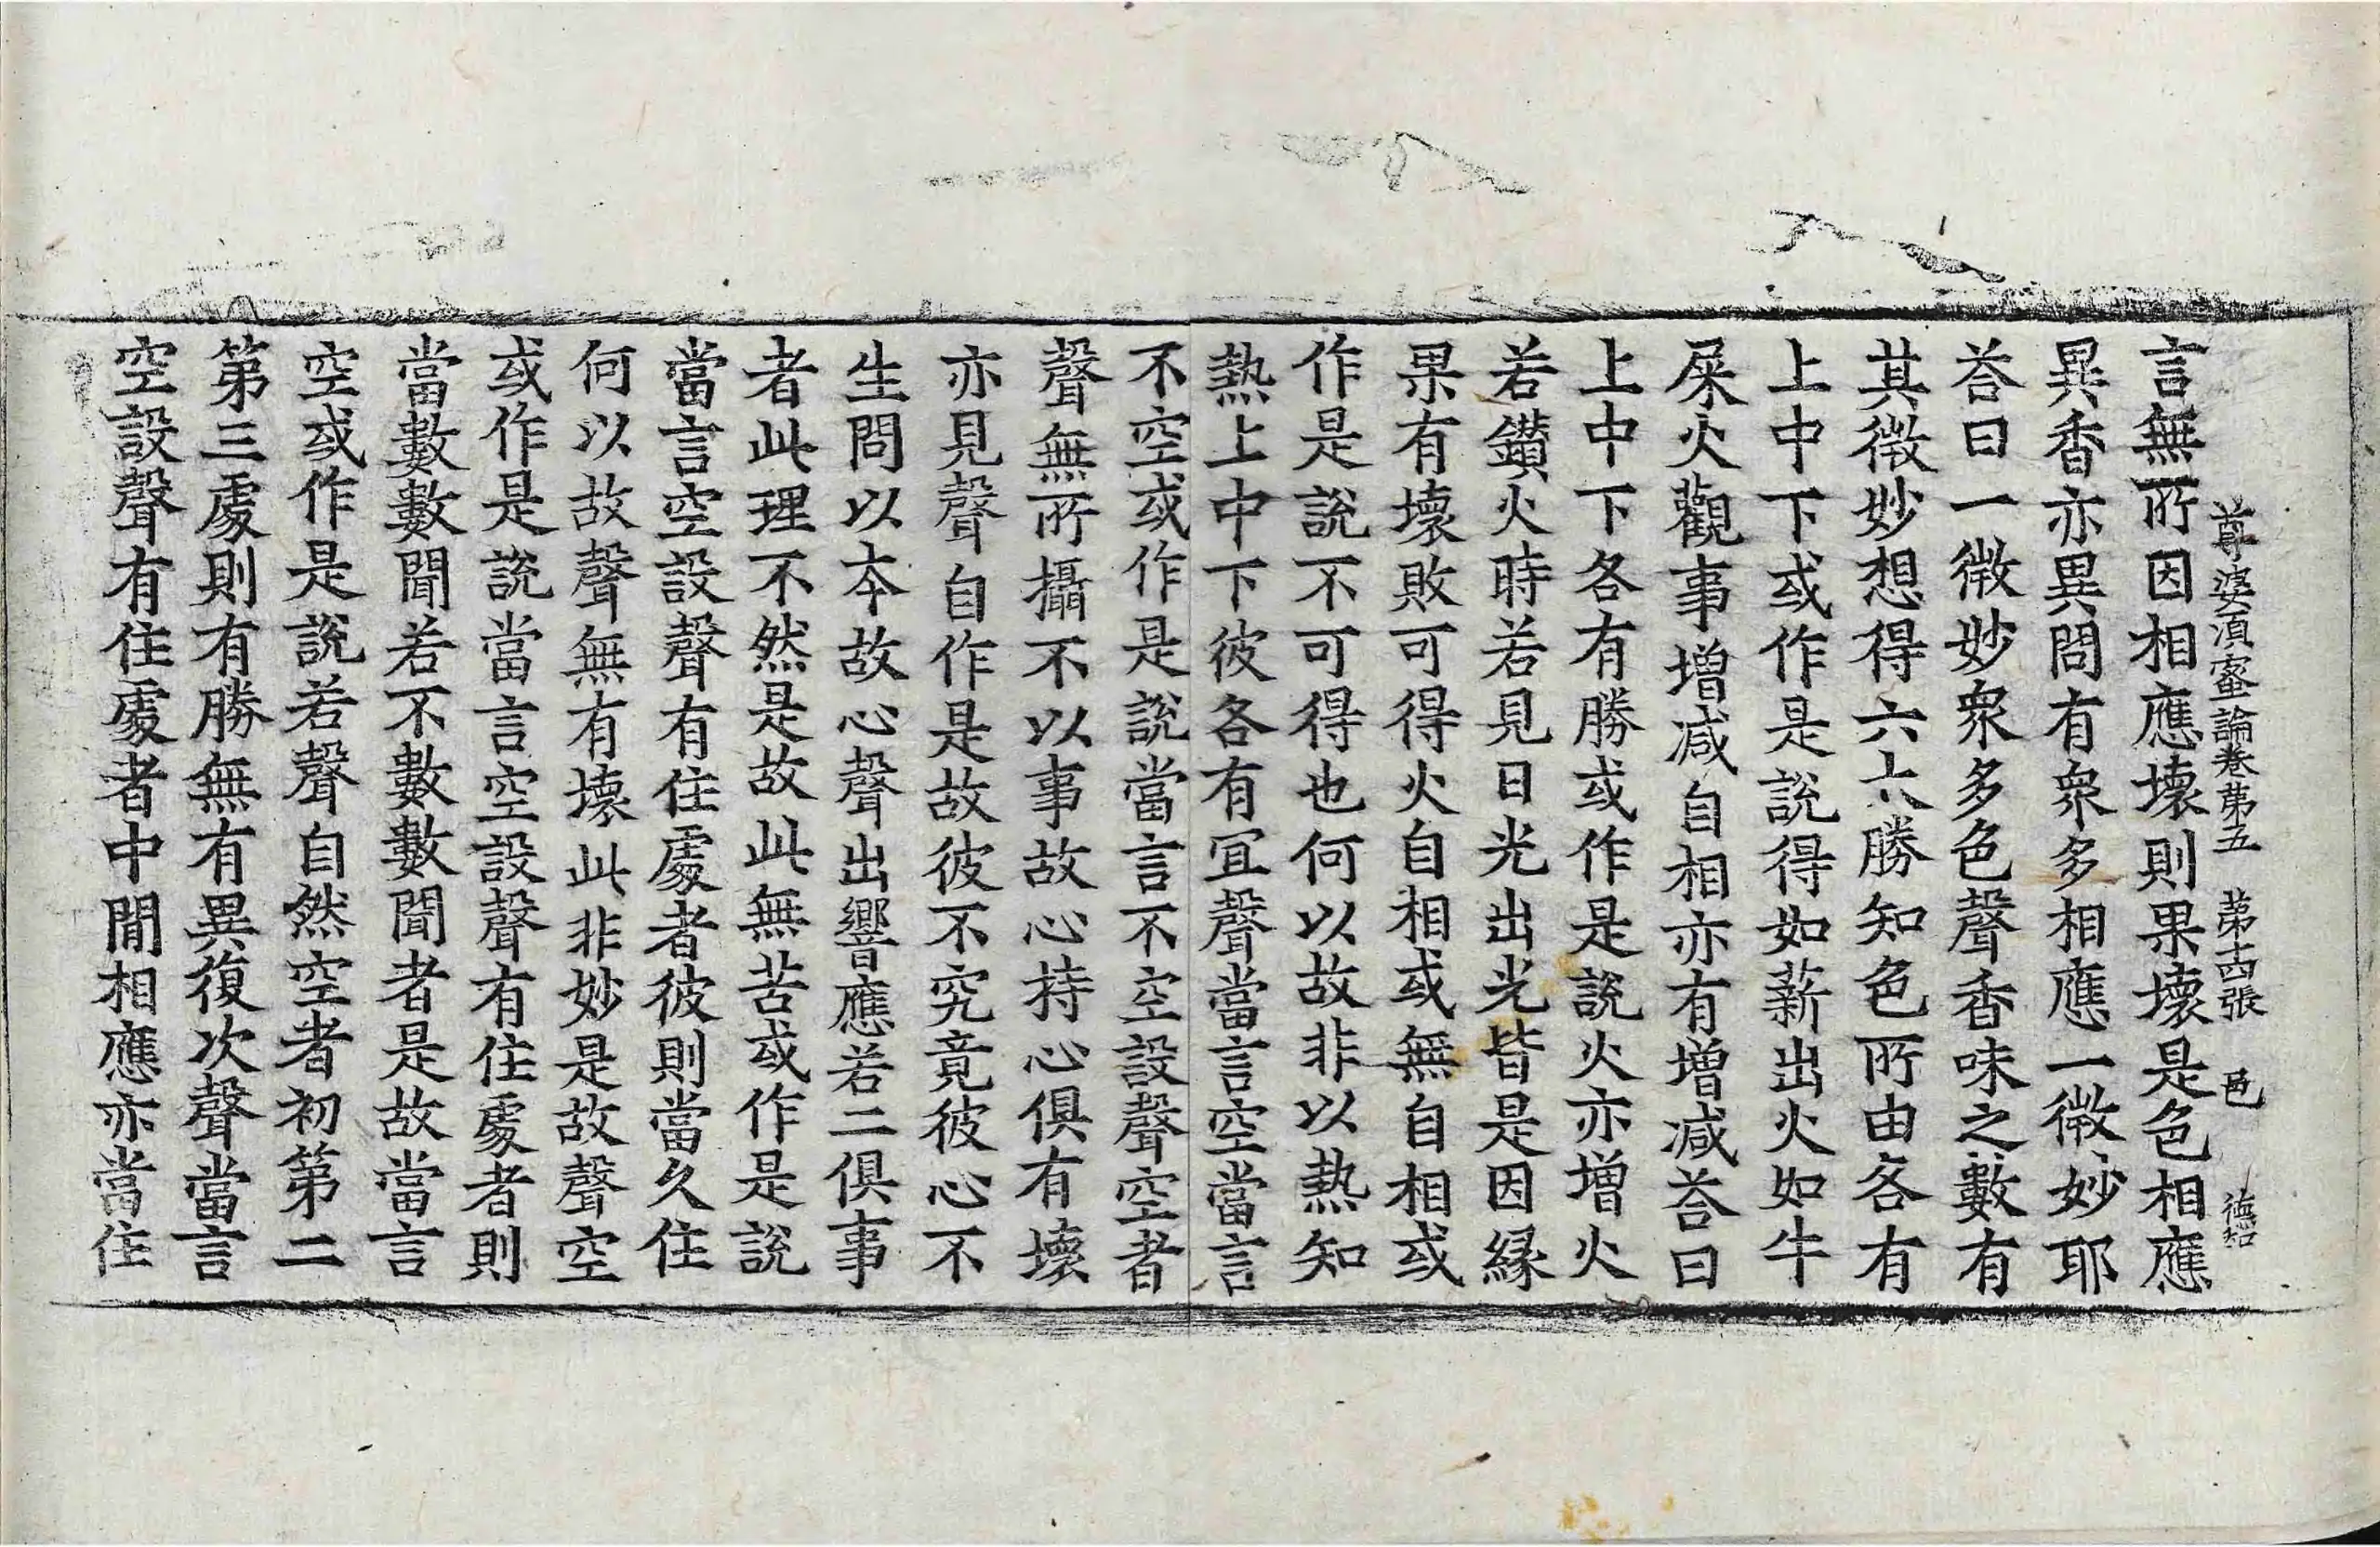 尊婆湏蜜論卷苐五　苐十四張　邑　德知
言無所因相應壞則果壞是色相應
異香亦異問有衆多相應一微妙耶
荅曰一微妙衆多色聲香味之數有
其微妙想得六六勝知色所由各有
上中下或作是說得如薪出火如牛
屎火觀事增减自相亦有增减荅曰
上中下各有勝或作是說火亦增火
若鑚火時若見日光出光皆是因縁
果有壞敗可得火自相或無自相或
作是說不可得也何以故非以熱知
熱上中下彼各有冝聲當言空當言
不空或作是說當言不空設聲空者
聲無所攝不以事故心持心俱有壞
亦見聲自作是故彼不究竟彼心不
生問以本故心聲出響應若二俱事
者此理不然是故此無苦或作是說
當言空設聲有住處者彼則當久住
何以故聲無有壞此非妙是故聲空
或作是說當言空設聲有住處者則
當數數聞若不數數聞者是故當言
空或作是說若聲自然空者初第二
第三處則有勝無有異復次聲當言
空設聲有住處者中閒相應亦當住